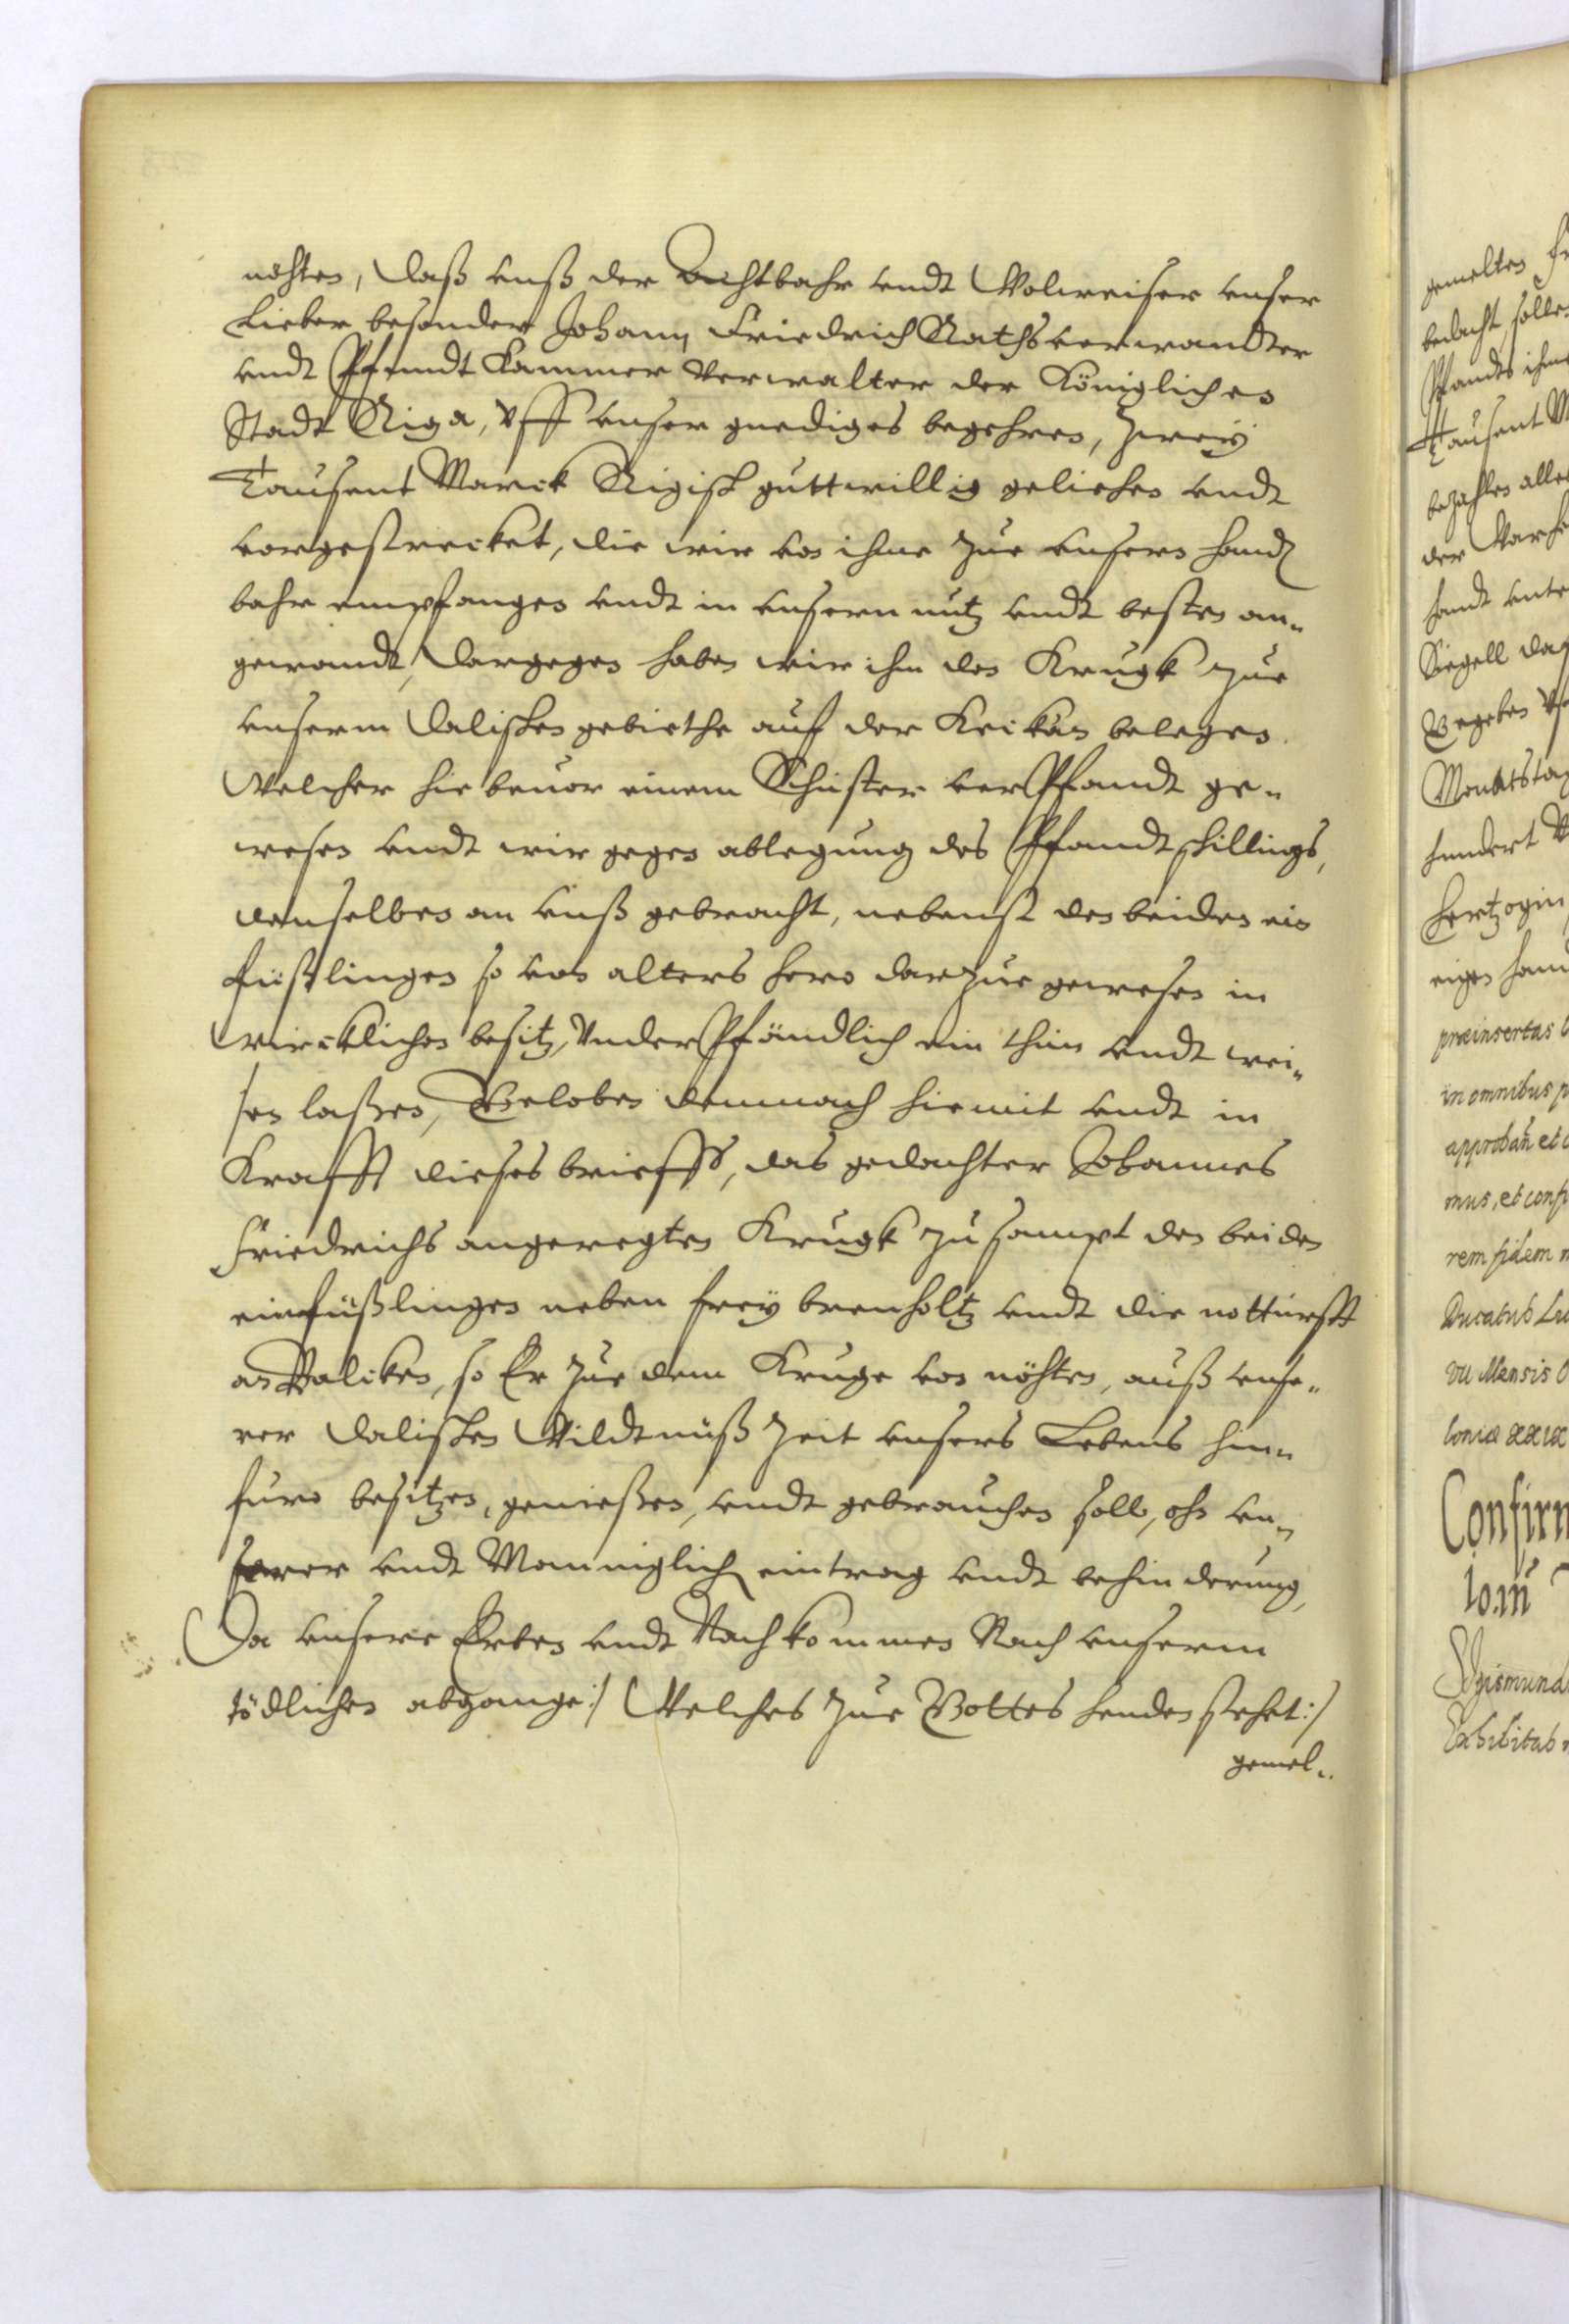 nöhten, daß vnß der Achtbahr vndt Wolweiser vnser
Lieber besonder Johann Friedrich Rathsverwandter
vndt Pfundt Kammer Verwalter der Königlichen
Stadt Riga, vff vnser gnediges begehren, zweÿ
Tausent Marck Rigisch guttwillig geliehen vndt
vorgestrecket, die wir von ihme zur vnsern handt
bahr empfangen vndt in vnsern nutz vndt besten an„
gewandt, Dargegen haben wir ihm den Krugk zur
vnserm Dalischen gebiethe auf der Keckau belegen
Welcher hiebeuor einem Schuster verPfandt ge„
wesen vndt wir gegen ablegung des Pfandtschillings,
denselben an vnß gebracht, nebenst den beiden ein
füßlingen so von alters hero darzur gewesen in
wircklichen besitz, VnderPfändlich ein thun vndt wei„
sen laßen, Geloben demnach hiemit vndt in
Krafft dieses brieffs, das gedachter Johannes
Friedrichs angeregten Krugk zusampt den beiden
einfüßlingen neben freÿ brenholtz vndt die notturfft
an Balcken, so Er zur dem Kruge von nöhten, auß vnse„
rer Dalischen Wildtnüß Zeit vnsers Lebens hin„
furo besitzen, genießen, vndt gebrauchen soll, ohn vn„
serer vndt Manniglich eintrag vndt behinderung,
Da vnsere Erben vndt Nachkommen Nach vnserm
tödlichen abgange :/ Welches zur Gottes henden stehet :/
gemel„
gemelten
bedacht, sollen
Pfandts ihme
Tausent
bezahlen
der
handt
Siegell
Gegeben
Monatstag
hundert
Hertzogin
eigen hand
præinsertas
in omnibus
approban et
mus, et conf
rem fidem
Ducatus
VII Mensis
loniæ
Confirm
Io.m
Sigismund
Exhibitas